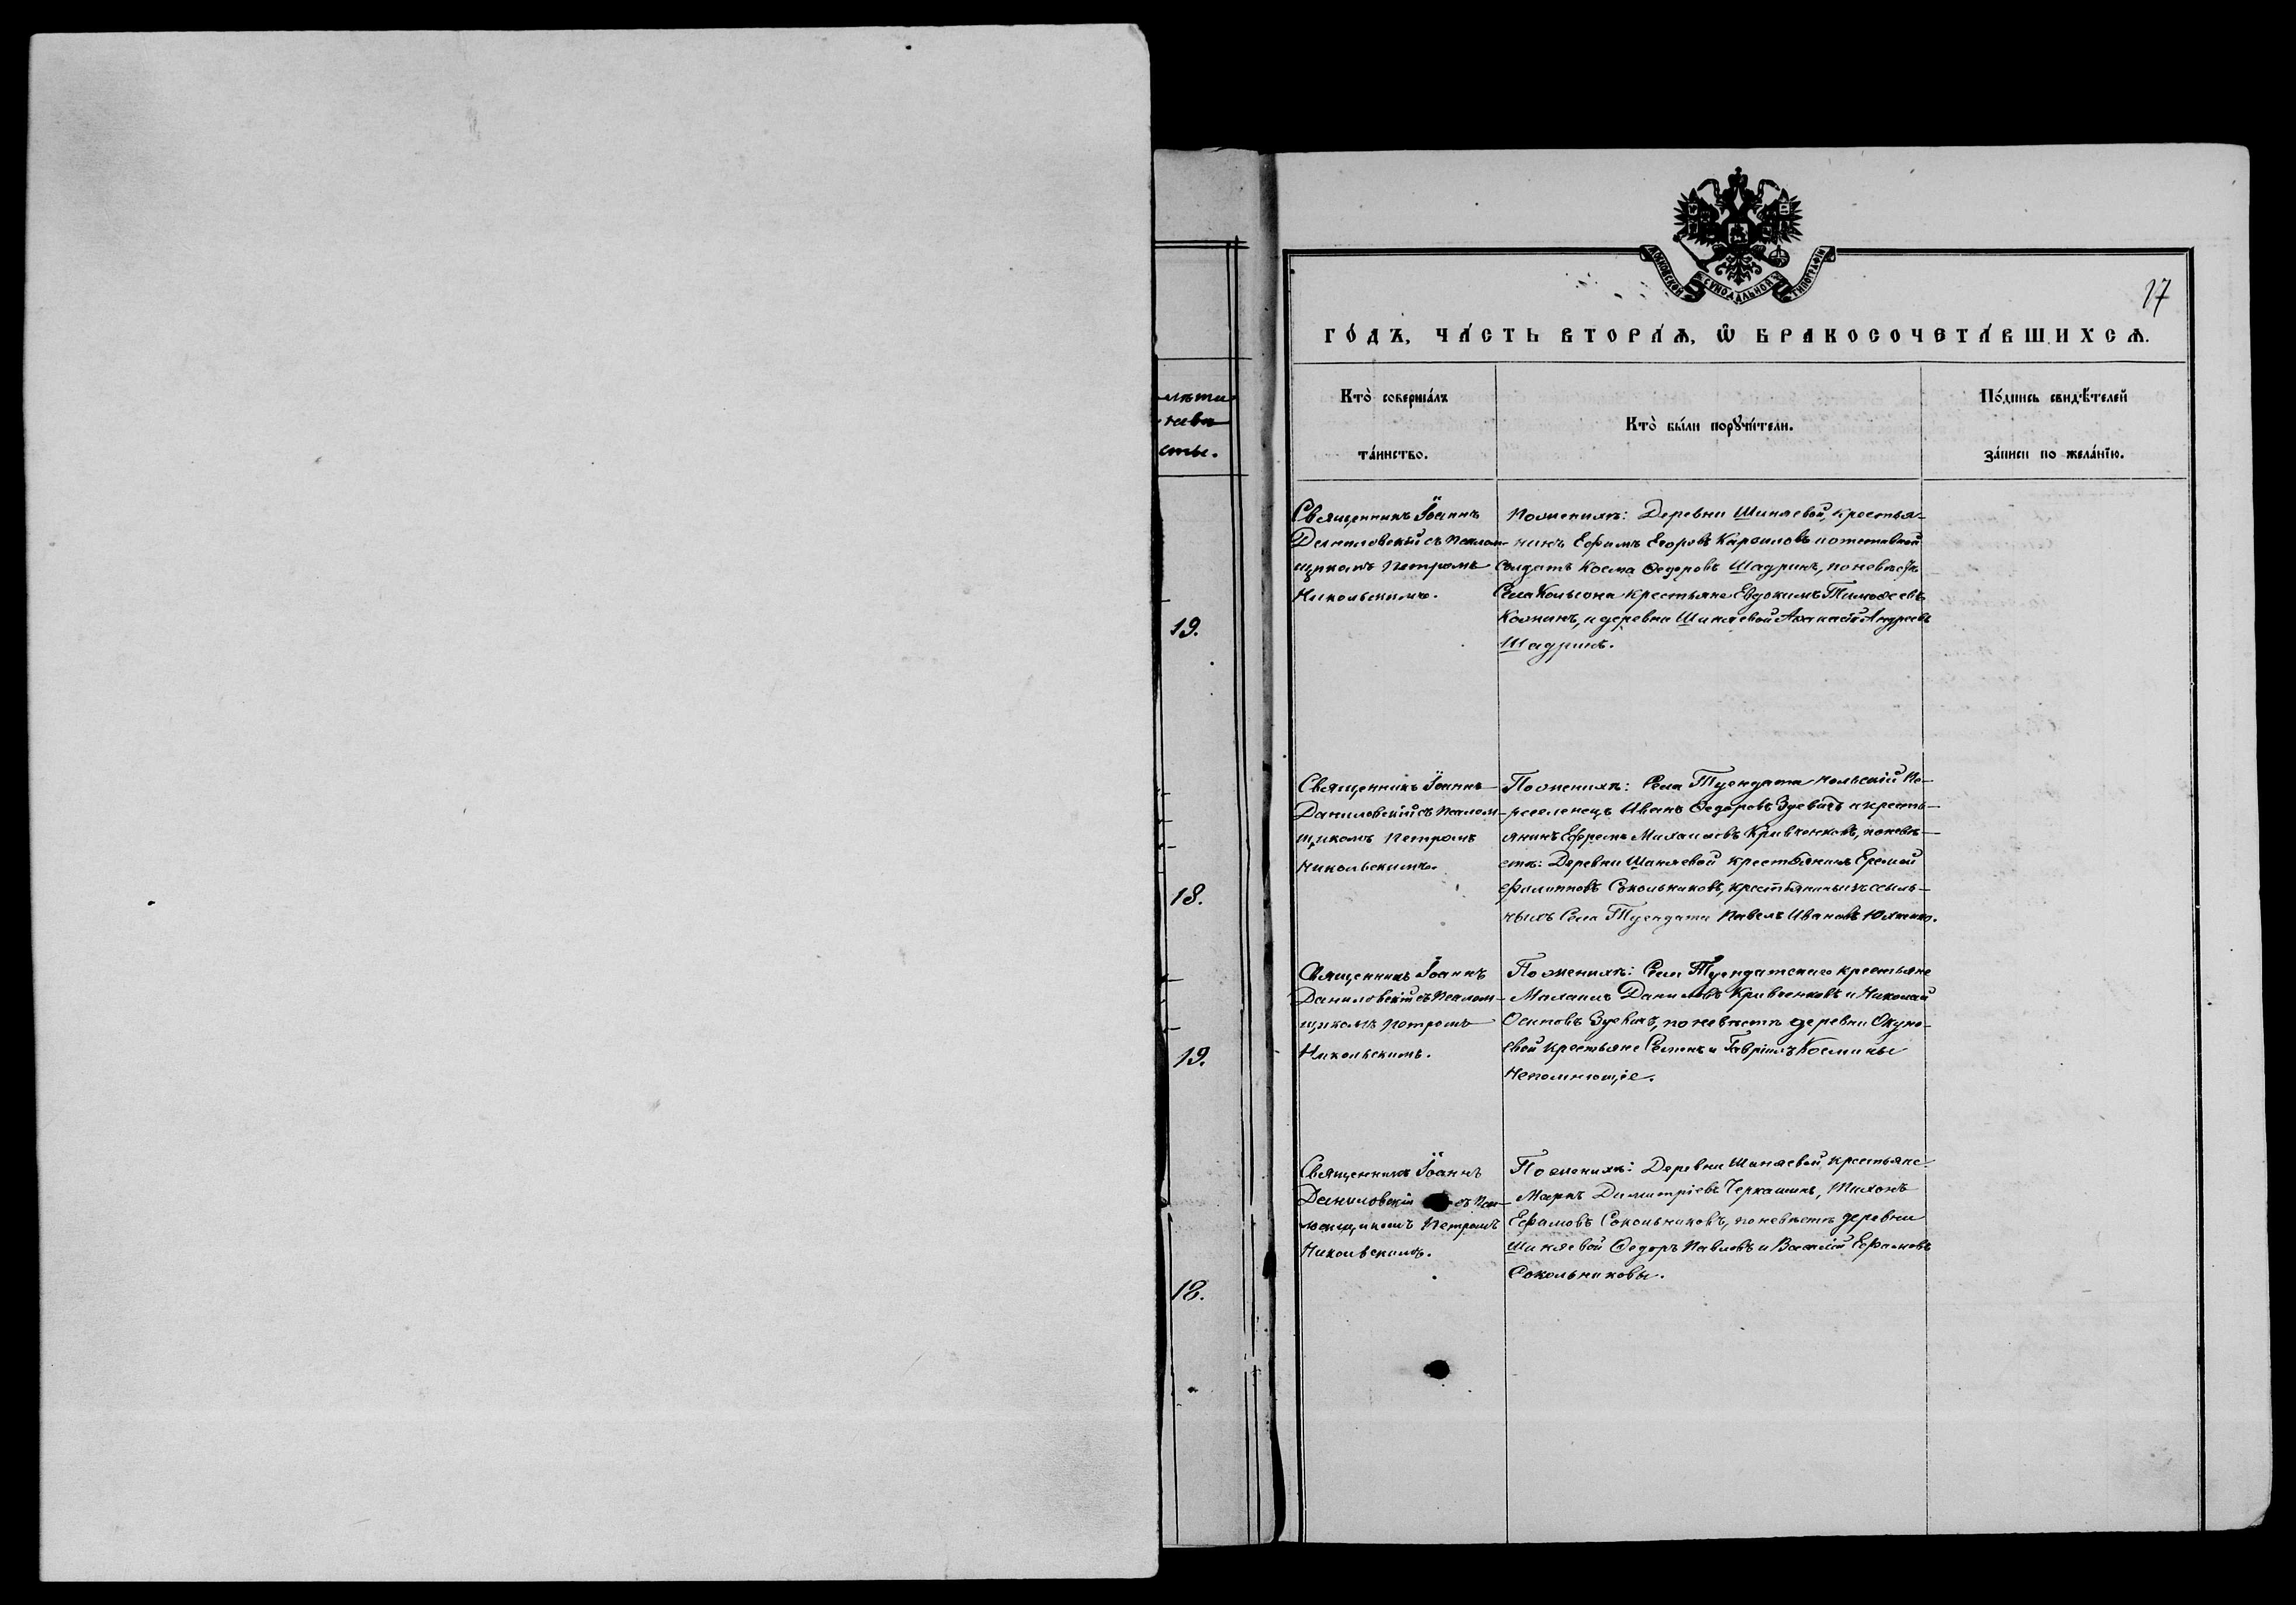 Московской Сѵнодальной Типографіи
17
ГО́ДЪ, ЧА́СТЬ ВТОРА́Ѧ, Ѡ҆ БРАКОСОЧЕТА́ВШИХСѦ.
Кто̀ соверша́лъ
та́инство.
Кто̀ бы́ли порꙋчи́тели.
По́дпись свидѣ́телей
за́писи по жела́нїю.
лѣта
невѣ
сты.
19.
18.
19.
18.
Священникъ Іоаннъ
Даниловскій съ псалом-
щикомъ Петромъ
Никольскимъ.
По женихѣ: Деревни Шиняевой, крестья-
нинъ Ефимъ Егоровъ и отставной
солдатъ Косма Ѳедоровъ Шадринъ, по невѣстѣ
Села крестьяне Евдокимъ Тимоѳеевъ
и деревни Шиняевой Андреевъ
Шадринъ.
Священникъ Іоаннъ
Даниловскій съ псалом-
щикомъ Петромъ
Никольскимъ.
По женихѣ: Села Туендата польскій пе-
реселенецъ Иванъ Ѳедоровъ Зуевичъ и кресть-
янинъ Ефремъ Михаиловъ Кривченковъ, по невѣ-
стѣ: Деревни Шиняевой крестьянинъ Еремей
Филипповъ Сокольниковъ, крестьянинъ изъ ссыль-
ныхъ Села Туендата Павелъ Ивановъ
Священникъ Іоаннъ
Даниловскій съ псалом-
щикомъ Петромъ
Никольскимъ.
По женихѣ: Села Туендатскаго крестьяне
Михаилъ Даниловъ Кривченковъ и Николай
Осиповъ Зуевичъ, по невѣстѣ деревни Окуне-
евой крестьяне Семенъ и Гавріилъ Космины
Непомнющіе.
Священникъ Іоаннъ
Даниловскій съ пса-
ломщикомъ Петромъ
Никольскимъ.
По женихѣ: Деревни Шиняевой крестьяне
Маркъ Димитріевъ Черкашинъ, Тихонъ
Ефимовъ Сокольниковъ, по невѣстѣ деревни
Шиняевой Ѳедоръ Павловъ и Василій Ефимовъ
Сокольниковы.